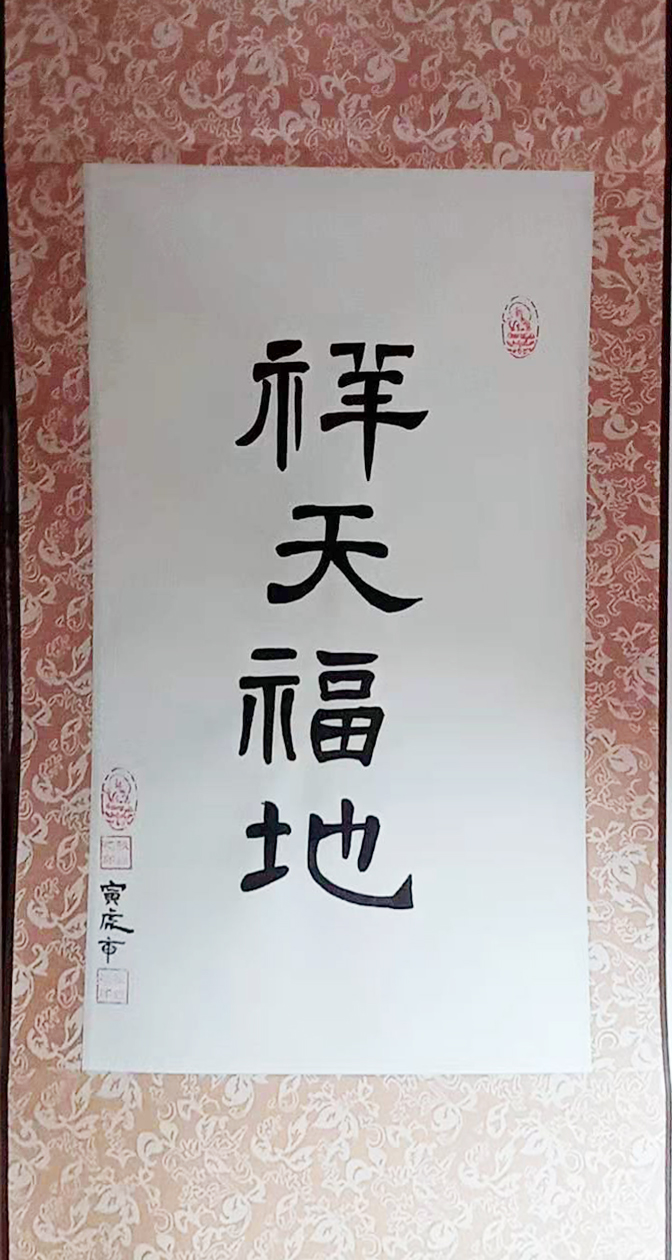 祥天福地
寅虎市